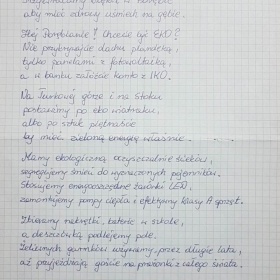 aby mieć zdrowy uśmiech na gębie.
Hej Porąbianie! Chcecie być EKO?
Nie przykrywajcie dachu plandeką,
tylko panelami z fotowoltaiką,
a w banku załóżcie konto z IKO.
Na Trunkowej górze i na stoku
postawimy po eko wiatraku,
albo po sztuk piętnaście
by mieć zieloną energię właśnie.
Mamy ekologiczną oczyszczalnię ścieków,
segregujemy śmieci do wyznaczonych pojemników.
Stosujemy energooszczędne żarówki LED,
zamontujemy pompy ciepła i efektywny klasy A sprzęt.
Zbieramy nakrętki, baterie w szkole,
a deszczówką podlejemy pole.
Żeliwnych garnków używamy przez długie lata,
aż przyjeżdżają goście na prażonki z całego świata.